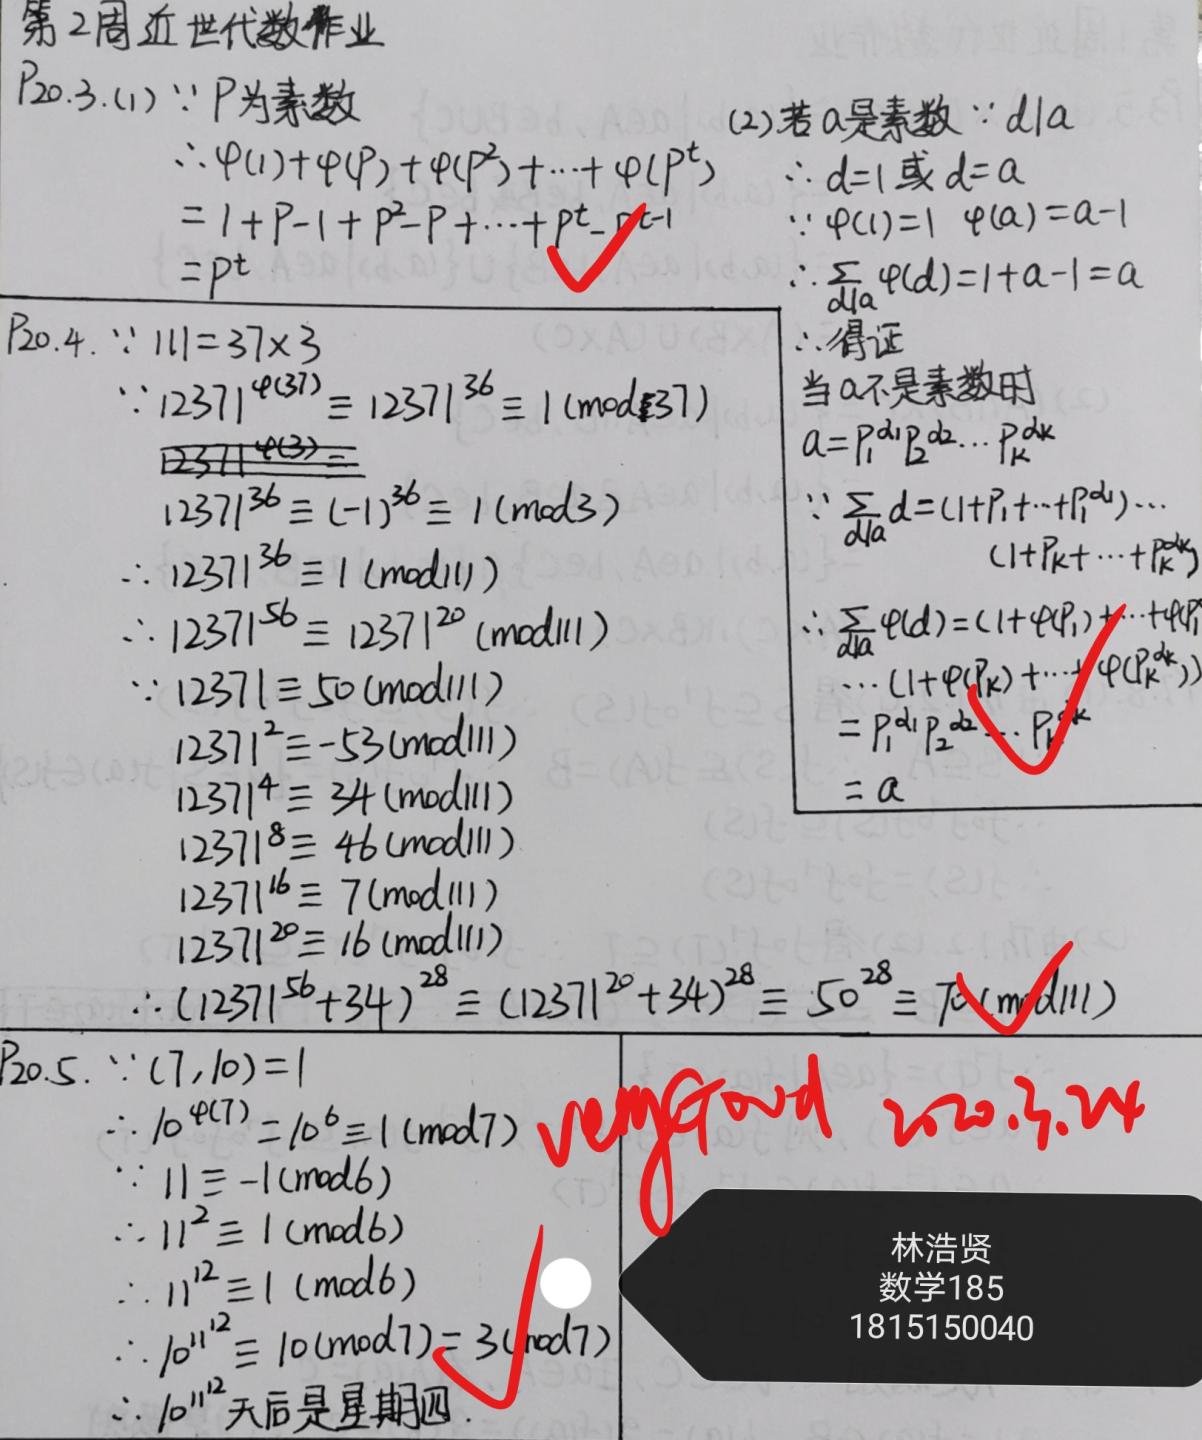 第2周近世代数作业
P20.3.(1) ∵ P为素数
∴ φ(1)+φ(P)+φ(P²)+…+φ(Pᵗ)
=1+P-1+P²-P+…+Pᵗ-Pᵗ⁻¹
=Pᵗ
(2)若a是素数 ∵ d|a
∴ d=1 或 d=a
∵ φ(1)=1 φ(a)=a-1
∴ ∑_{d|a} φ(d)=1+a-1=a
∴ 得证
当a不是素数时
a=P₁^{α₁}P₂^{α₂}…P_k^{α_k}
∵ ∑_{d|a} d=(1+P₁+…+P₁^{α₁})…
(1+P_k+…+P_k^{α_k})
∴ ∑_{d|a} φ(d)=(1+φ(P₁)+…+φ(P₁
…(1+φ(P_k)+…+φ(P_k^{α_k}))
=P₁^{α₁}P₂^{α₂}…P_k^{α_k}
=a
P20.4. ∵ 111=37×3
∵ 12371^{φ(37)}≡12371³⁶≡1(mod37)
12371^{φ(3)}≡
12371³⁶≡(-1)³⁶≡1(mod3)
∴ 12371³⁶≡1(mod111)
∴ 12371⁵⁶≡12371²⁰(mod111)
∵ 12371≡50(mod111)
12371²≡-53(mod111)
12371⁴≡34(mod111)
12371⁸≡46(mod111)
12371¹⁶≡7(mod111)
12371²⁰≡16(mod111)
∴ (12371⁵⁶+34)²⁸≡(12371²⁰+34)²⁸≡50²⁸≡70(mod111)
P20.5. ∵ (7,10)=1
∴ 10^{φ(7)}=10⁶≡1(mod7)
∵ 11≡-1(mod6)
∴ 11²≡1(mod6)
∴ 11¹²≡1(mod6)
∴ 10^{11^{12}}≡10(mod7)=3(mod7)
∴ 10^{11^{12}}天后是星期四.
very Good 2020.3.24
林浩贤
数学185
1815150040